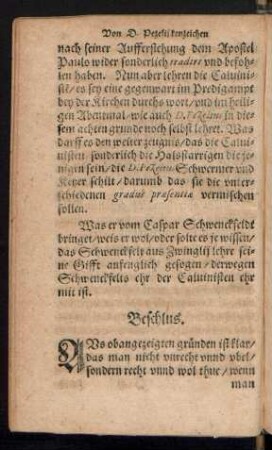 Von D. Pezelii kenzeichen
nach seiner Aufferstehung dem Apostel
Paulo wider sonderlich tradirt vnd befoh-
len haben. Nun aber lehren die Caluini-
sten / es sey eine gegenwart im Predigampt
bey der Kirchen durchs wort / vnd im heili-
gen Abentmal / wie auch D. Pezelius in die-
sem achten grunde noch selbst lehret. Was
darff es den weiter zeugnis / das die Calui-
nisten sonderlich die Halsstarrigen die je-
nigen sein / die D. Pezelius Schwermer vnd
Keper schilt / darumb das sie die vnter-
schiedenen gradus præsentiæ vermischen
sollen.
Was er vom Caspar Schwenckfeldt
bringet / weis er wol / oder solte es je wissen /
das Schwenckfelt aus Zwinglij lehr sei-
ne Gifft anfenglich gesogen / derwegen
Schwenckfelts ehr der Caluinisten ehr
mit ist.
Beschlus.
AVs obangezeigten gründen ist klar /
das man nicht vnrecht vnnd vbel /
sondern recht vnnd wol thue / wenn
man